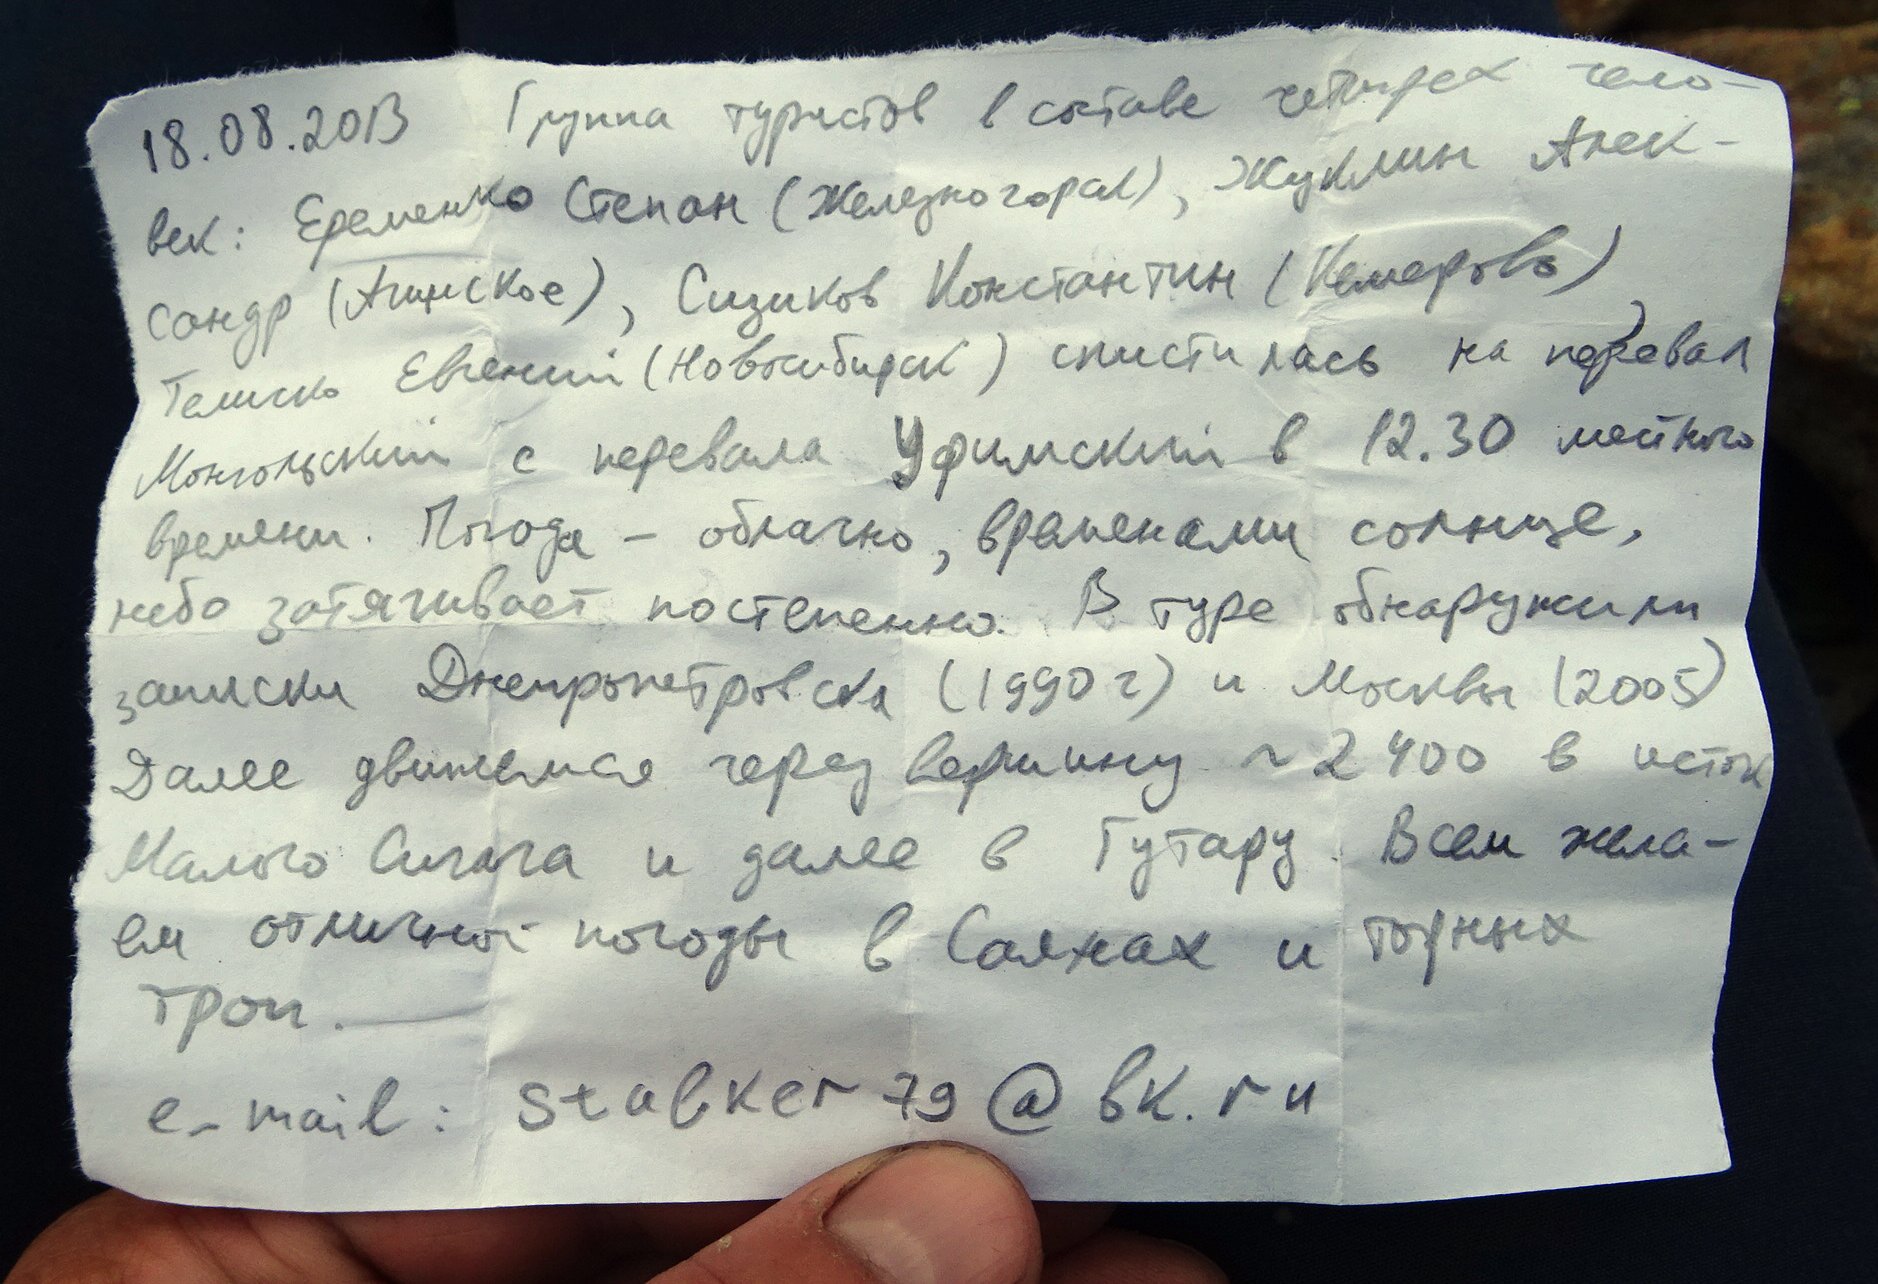 18.08.2013 Группа туристов в составе четырех чело-
век: Еременко Степан (Железногорск), Жуклин Алек-
сандр (Агинское), Сизиков Константин (Кемерово),
Телиско Евгений (Новосибирск) спустилась на перевал
Монгольский с перевала Уфимский в 12.30 местного
времени. Погода – облачно, временами солнце,
небо затягивает постепенно. В туре обнаружили
записки Днепропетровска (1990 г) и Москвы (2005)
Далее движемся через вершину ~ 2400 в исток
Малого Сигача и далее в Гутару. Всем жела-
ем отличной погоды в Саянах и торных
троп.
e-mail: stalker79@bk.ru